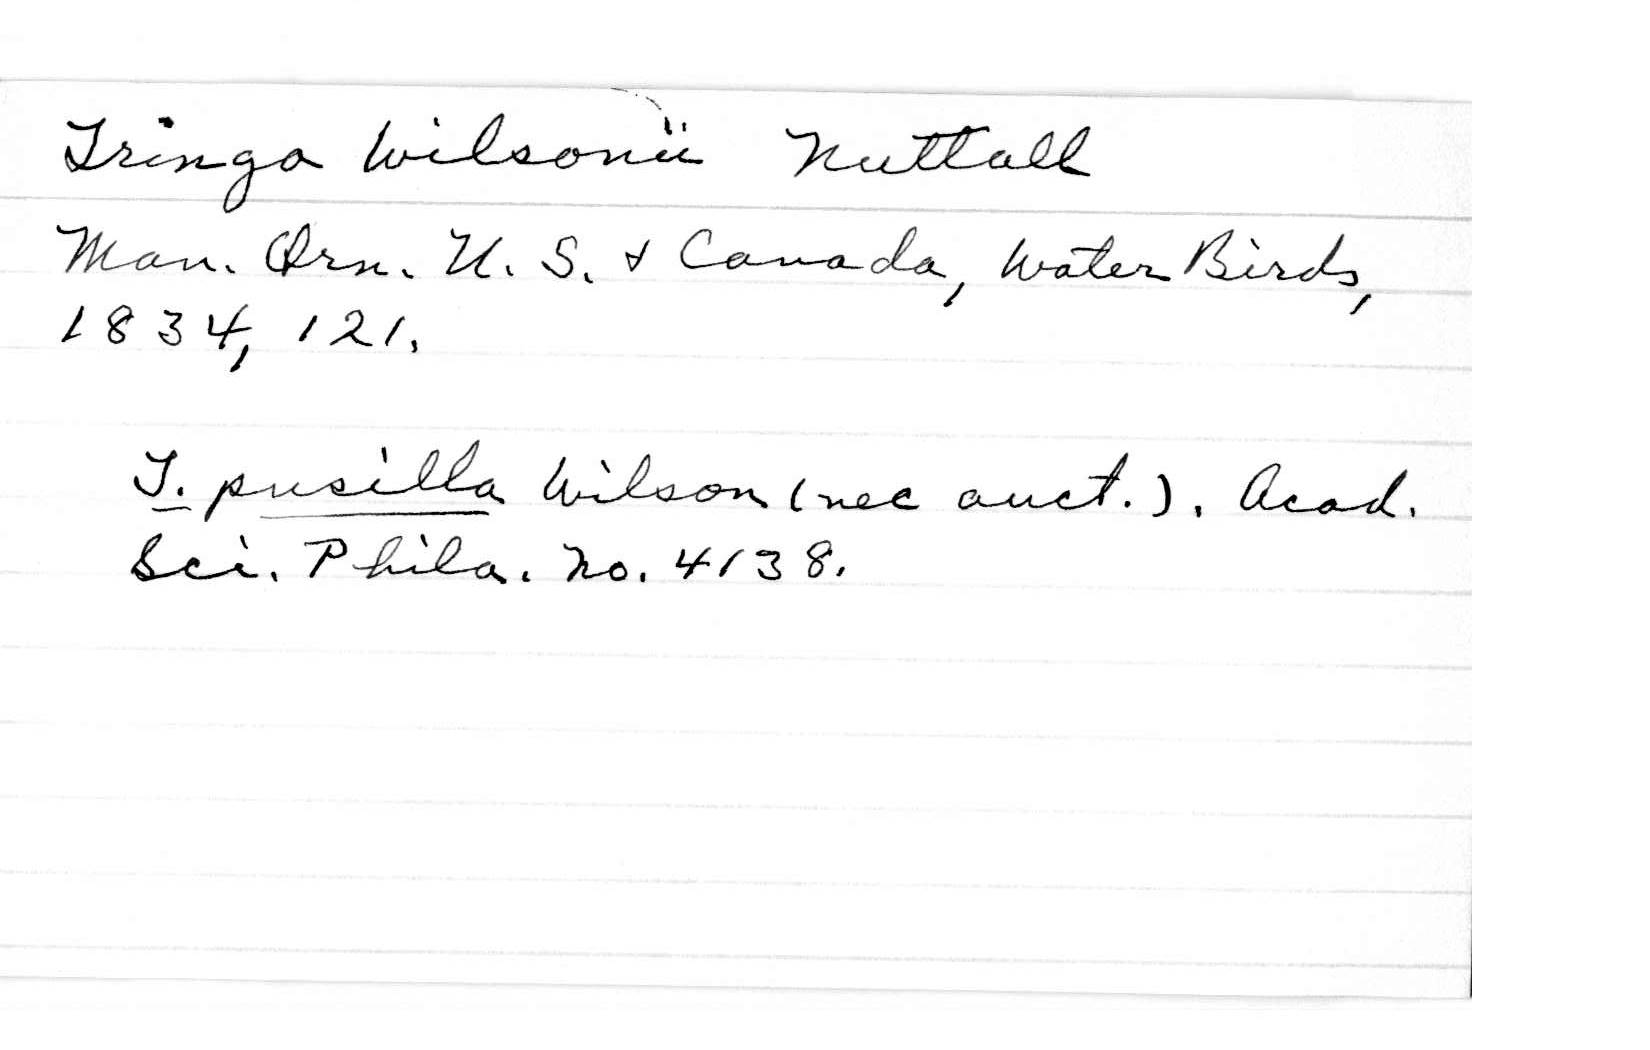 Tringa Wilsonii Nuttall
Man. Orn. U. S. & Canada, Water Birds,
1834, 121.
T. pusilla Wilson (nec auct.). Acad.
Sci. Phila. No. 4138.